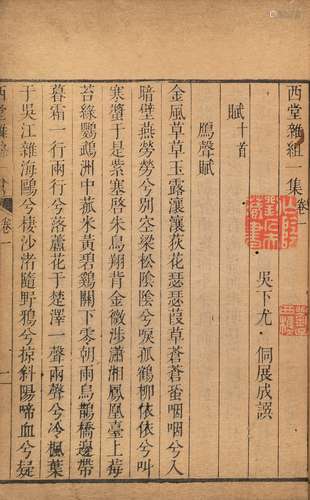 西堂雜組一集卷
吳下尤侗展成譔
賦十首
鴈聲賦
金風草草玉露瀼瀼荻花瑟瑟葭草蒼蒼蛩咽咽兮入
暗壁燕勞勞兮別空梁松陰陰兮唳孤鶴柳依依兮叫
寒螿于是紫塞啓朱鳥翔背金微涉瀟湘鳳凰臺上莓
苔綠鸚鵡洲中菰米黃碧雞關下零朝雨烏鵲橋邊帶
暮霜一行兩行兮落蘆花于楚澤一聲兩聲兮冷楓葉
于吳江雜海鷗兮棲沙渚隨野鴉兮掠斜陽啼血兮疑
西堂雜組
卷一
一